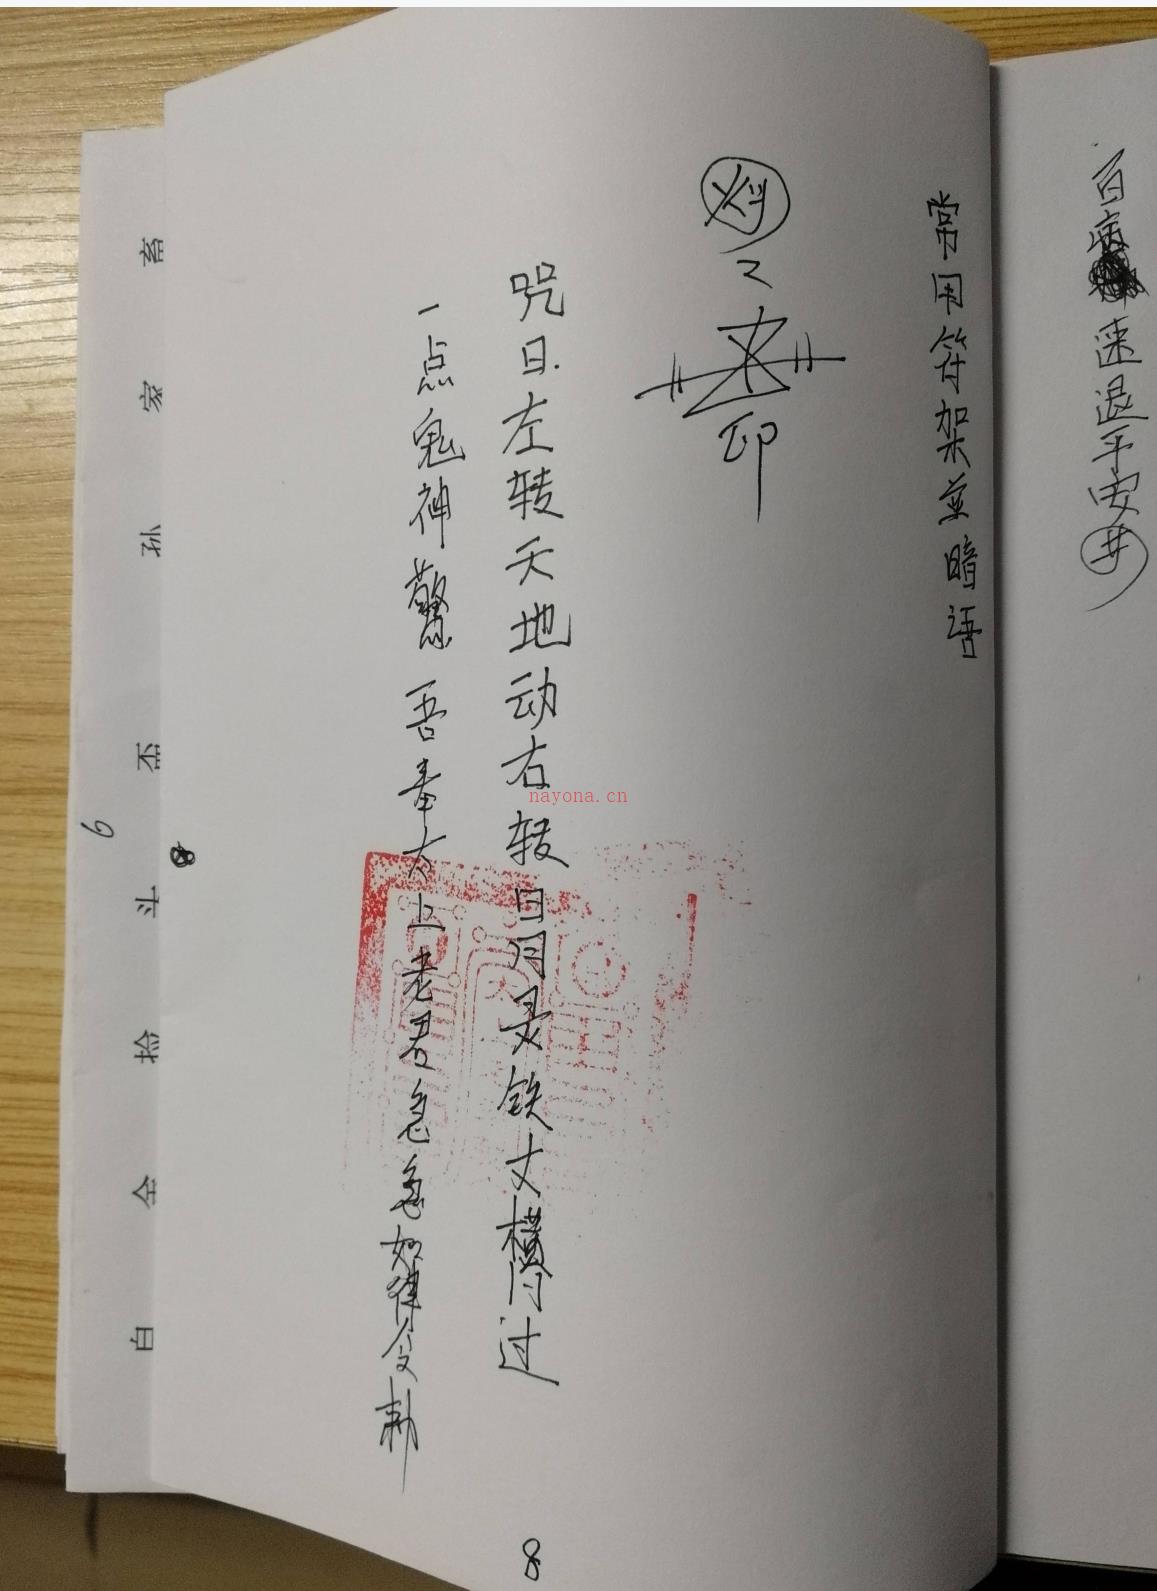 百病速退平安井
常用符架並暗语
印
咒曰左转天地动右转日月灵铁丈
过
一点鬼神驚吾奉太上老君急急如律令敕
nayona.cn
8
8
畜家孙丕斗捡全白
6